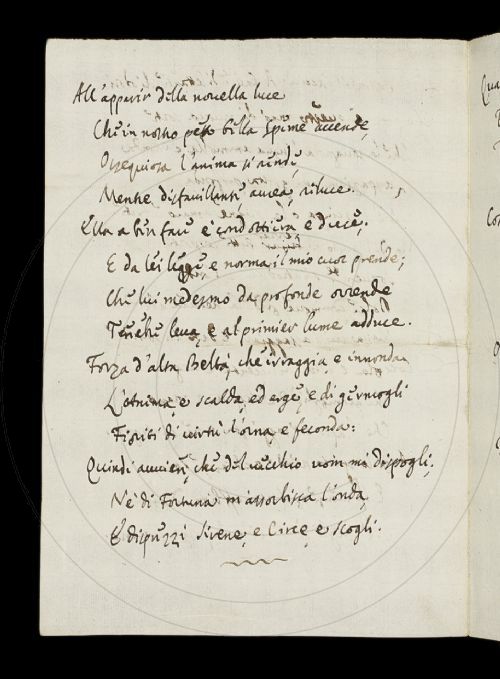 All'apparir della novella luce
Che in nostro petto bella Speme accende,
Ossequiosa l'anima si rende,
Mentre disfavillante, aurea, riluce.
Ella a ben fare è condottiera e duce;
E da lei legge, e norma il mio cuor prende;
Che lui medesmo da profonde orrende
Tenebre leva, e al primier lume adduce.
Forza d'alta Beltà, che irraggia e innonda
L'Anima, e scalda, ed erge, e di germogli
Fioriti di virtù l'orna, e feconda:
Quindi avvien, che del vecchio uom mi dispogli;
Nè di Fortuna m'assorbisca l'onda,
E disprezzi Sirene, e Circe, e scogli.
Qua
Co